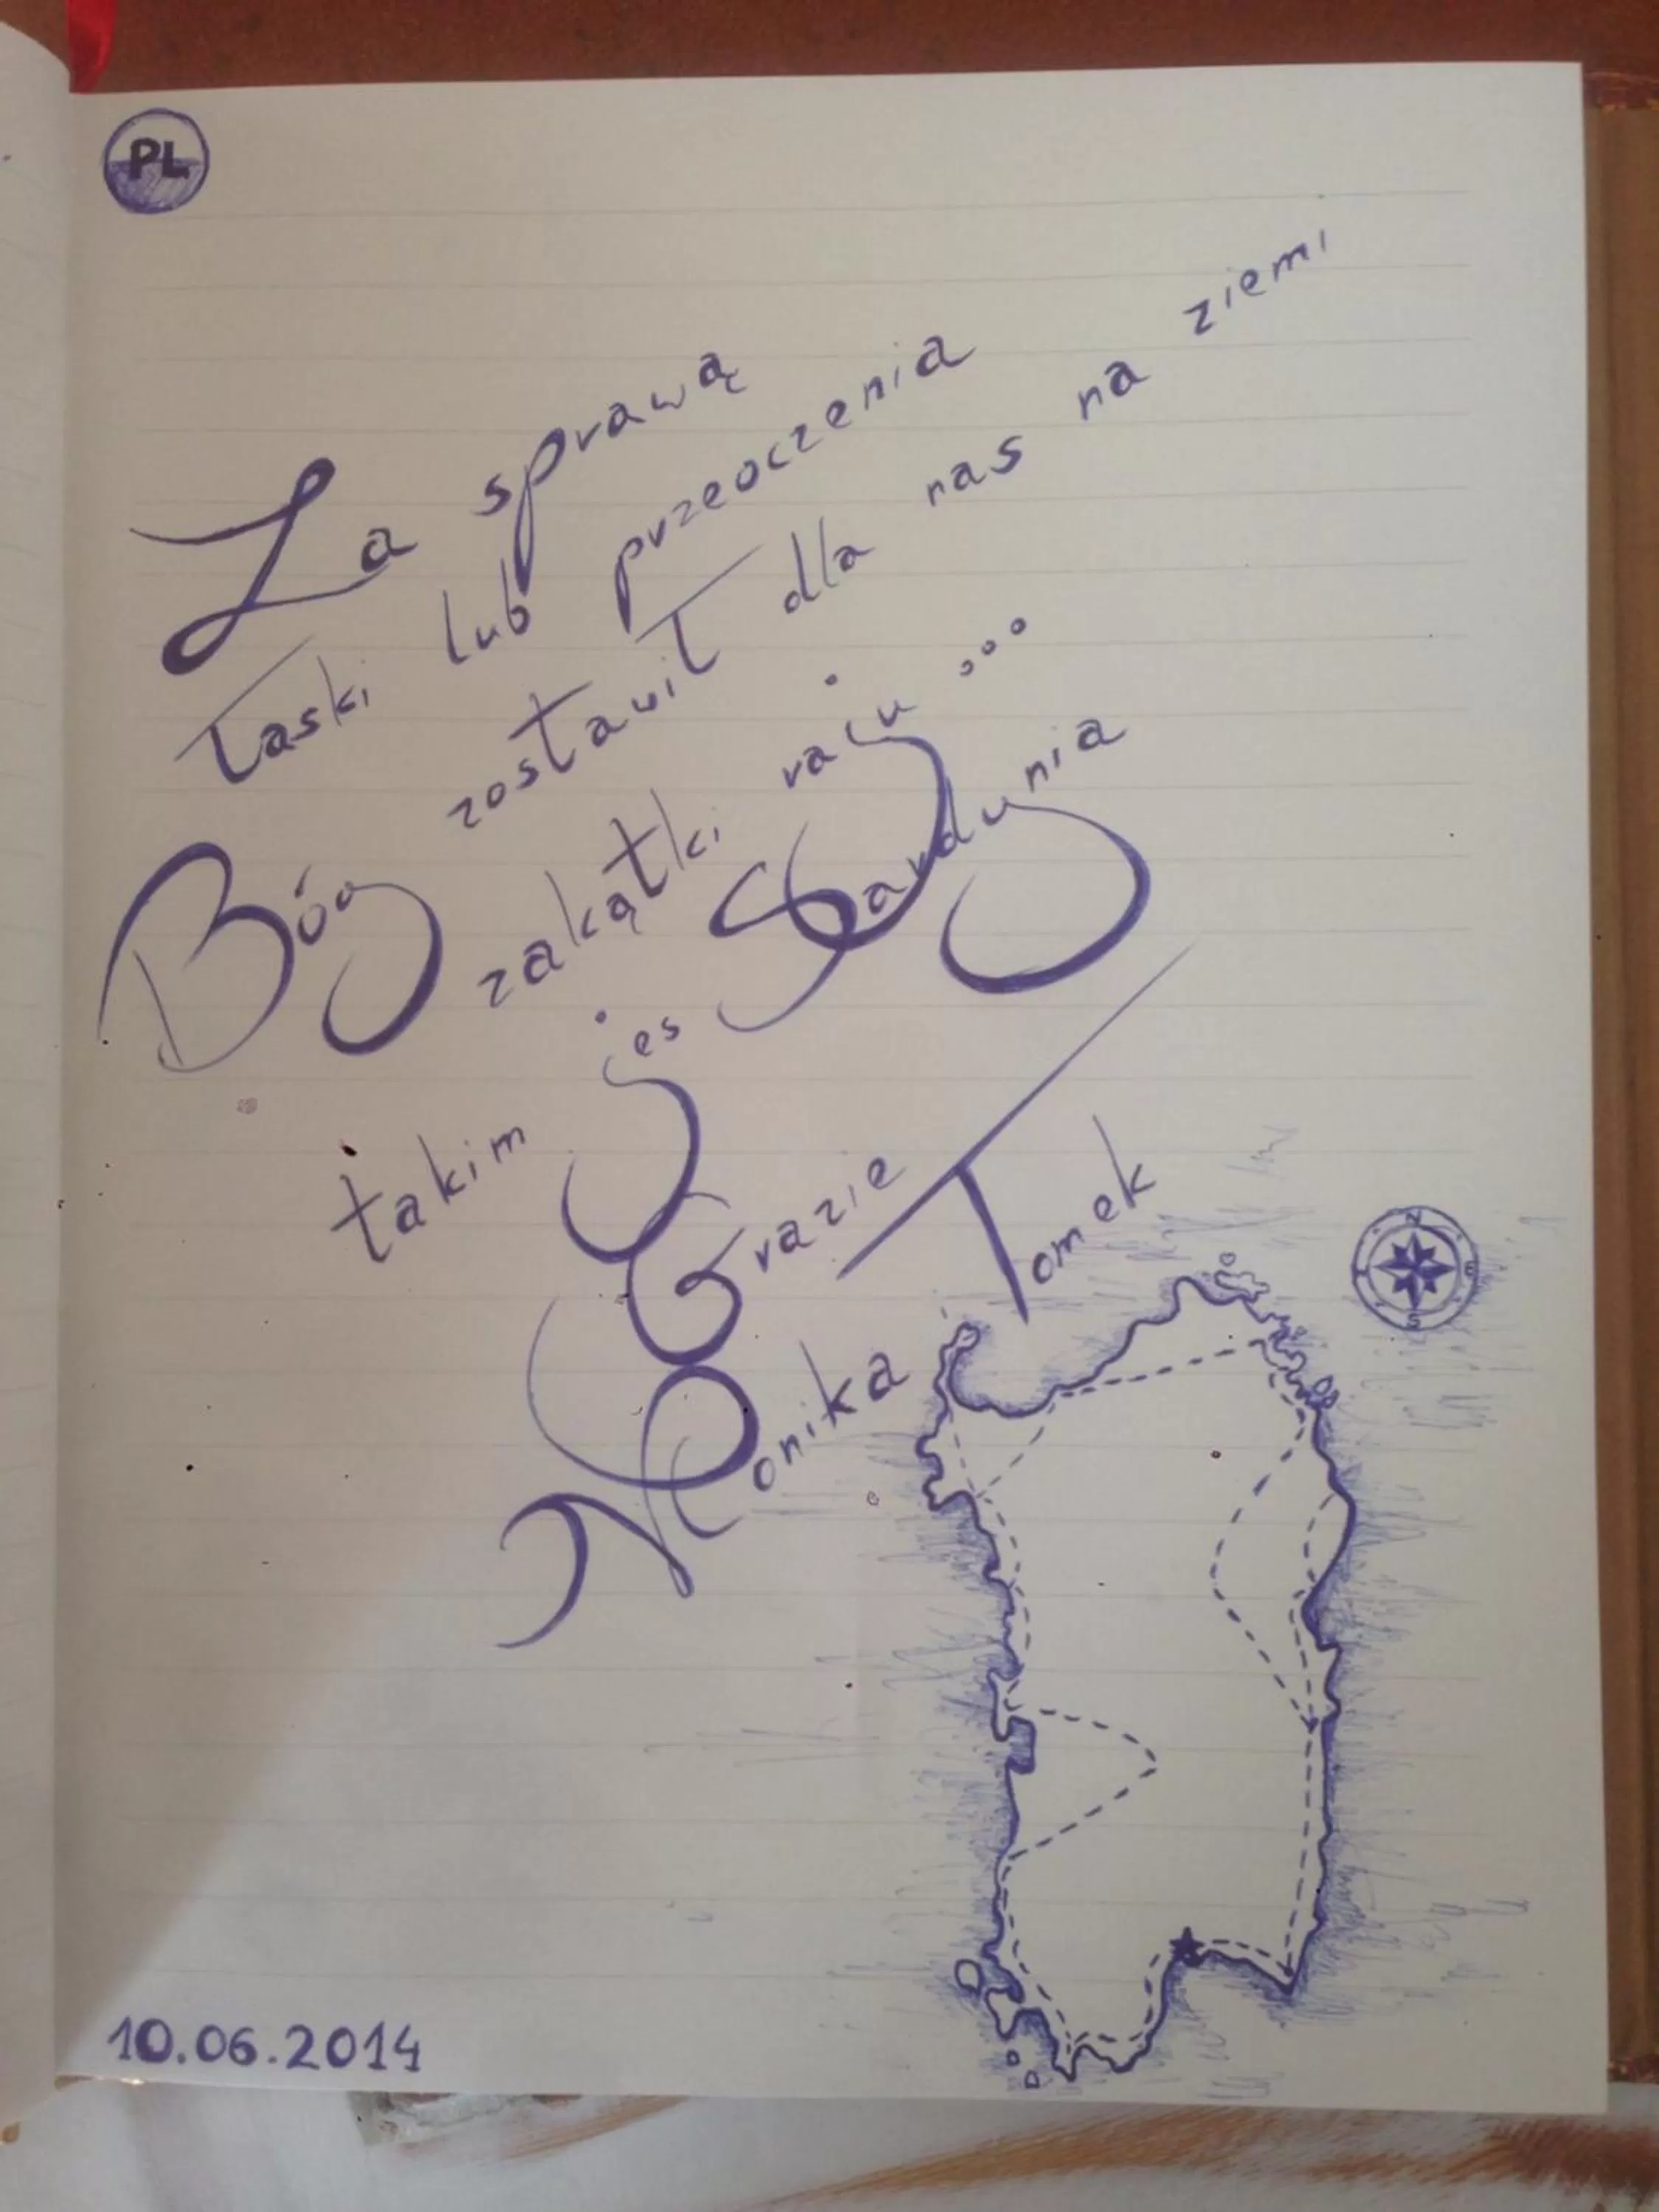 PL
Za sprawą
łaski lub przeoczenia
Bóg zostawił dla nas na ziemi
zakątki raju...
takim jes Sardynia
Grazie
Monika Tomek
N
E
S
10.06.2014